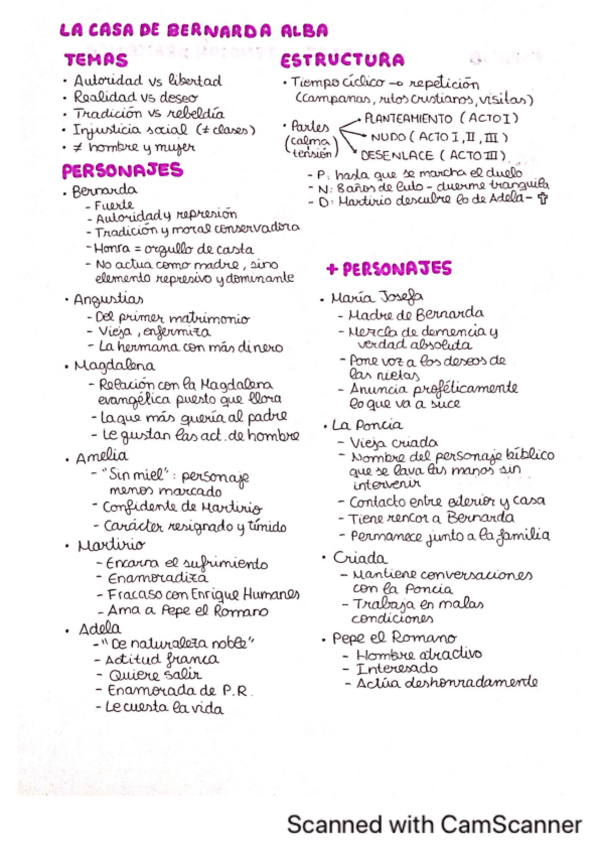 LA CASA DE BERNARDA ALBA
TEMAS
· Autoridad vs libertad
· Realidad vs deseo
· Tradición vs rebeldía
· Injusticia social (≠ clases)
· ≠ hombre y mujer
PERSONAJES
· Bernarda
- Fuerte
- Autoridad y represión
- Tradición y moral conservadora
- Honra = orgullo de casta
- No actua como madre, sino
elemento represivo y dominante
· Angustias
- Del primer matrimonio
- Vieja, enfermiza
- La hermana con más dinero
· Magdalena
- Relación con la Magdalena
evangélica puesto que llora
- La que más quería al padre
- Le gustan las act. de hombre
· Amelia
- "Sin miel": personaje
menos marcado
- Confidente de Martirio
- Carácter resignado y tímido
· Martirio
- Encarna el sufrimiento
- Enamoradiza
- Fracaso con Enrique Humanes
- Ama a Pepe el Romano
· Adela
- "De naturaleza noble"
- Actitud franca
- Quiere salir
- Enamorada de P.R.
- Le cuesta la vida
ESTRUCTURA
· Tiempo cíclico → repetición
(campanas, ritos cristianos, visitas)
· Partes
(calma
tensión)
PLANTEAMIENTO (ACTO I)
NUDO (ACTO I, II, III)
DESENLACE (ACTO III)
- P: hasta que se marcha el duelo
- N: 8 años de luto - duerme tranquila
- D: Martirio descubre lo de Adela - ✝
+ PERSONAJES
· María Josefa
- Madre de Bernarda
- Mezcla de demencia y
verdad absoluta
- Pone voz a los deseos de
las nietas
- Anuncia proféticamente
lo que va a suce
· La Poncia
- Vieja criada
- Nombre del personaje bíblico
que se lava las manos sin
intervenir
- Contacto entre exterior y casa
- Tiene rencor a Bernarda
- Permanece junto a la familia
· Criada
- Mantiene conversaciones
con la Poncia
- Trabaja en malas
condiciones
· Pepe el Romano
- Hombre atractivo
- Interesado
- Actúa deshonradamente
Scanned with CamScanner